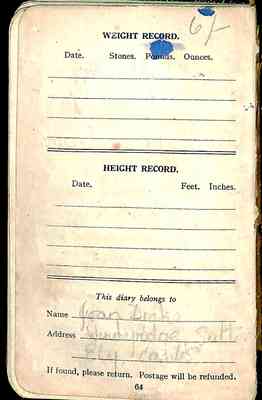 6/-
WEIGHT RECORD.
Date. Stones. Pounds. Ounces.
HEIGHT RECORD.
Date. Feet. Inches.
This diary belongs to
Name Joan
Address Sunnyridge
Ely
If found, please return. Postage will be refunded.
64